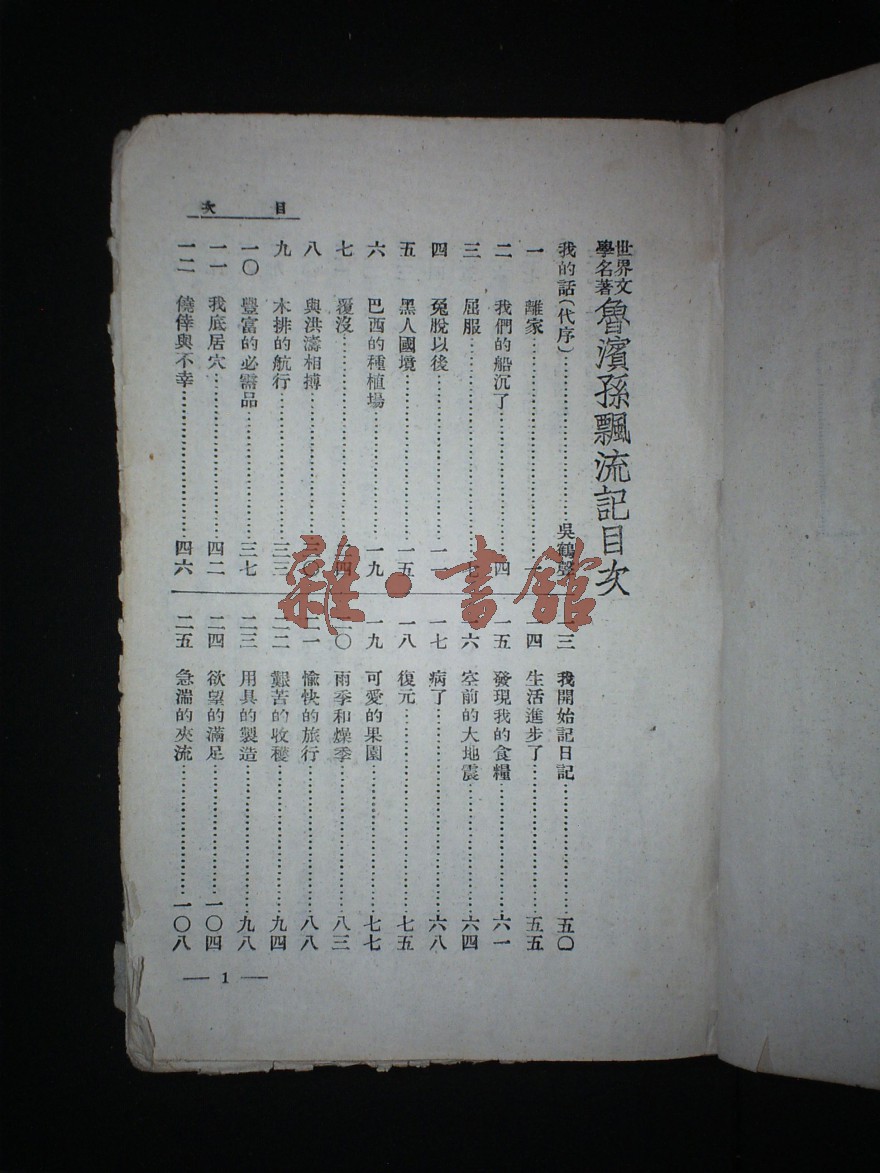 目次
世界文
學名著
魯濱孫飄流記目次
我的話(代序)……吳鶴聲
一 離家……一
二 我們的船沉了……四
三 屈服……七
四 兔脫以後……一一
五 黑人國境……一五
六 巴西的種植場……一九
七 覆沒……二四
八 與洪濤相搏……三〇
九 木排的航行……三三
一〇 豐富的必需品……三七
一一 我底居穴……四二
一二 僥倖與不幸……四六
一三 我開始記日記……五〇
一四 生活進步了……五五
一五 發現我的食糧……六一
一六 空前的大地震……六四
一七 病了……六八
一八 復元……七五
一九 可愛的果園……七七
二〇 雨季和燥季……八三
二一 愉快的旅行……八八
二二 艱苦的收穫……九四
二三 用具的製造……九八
二四 欲望的滿足……一〇四
二五 急湍的夾流……一〇八
— 1 —
雜·書館